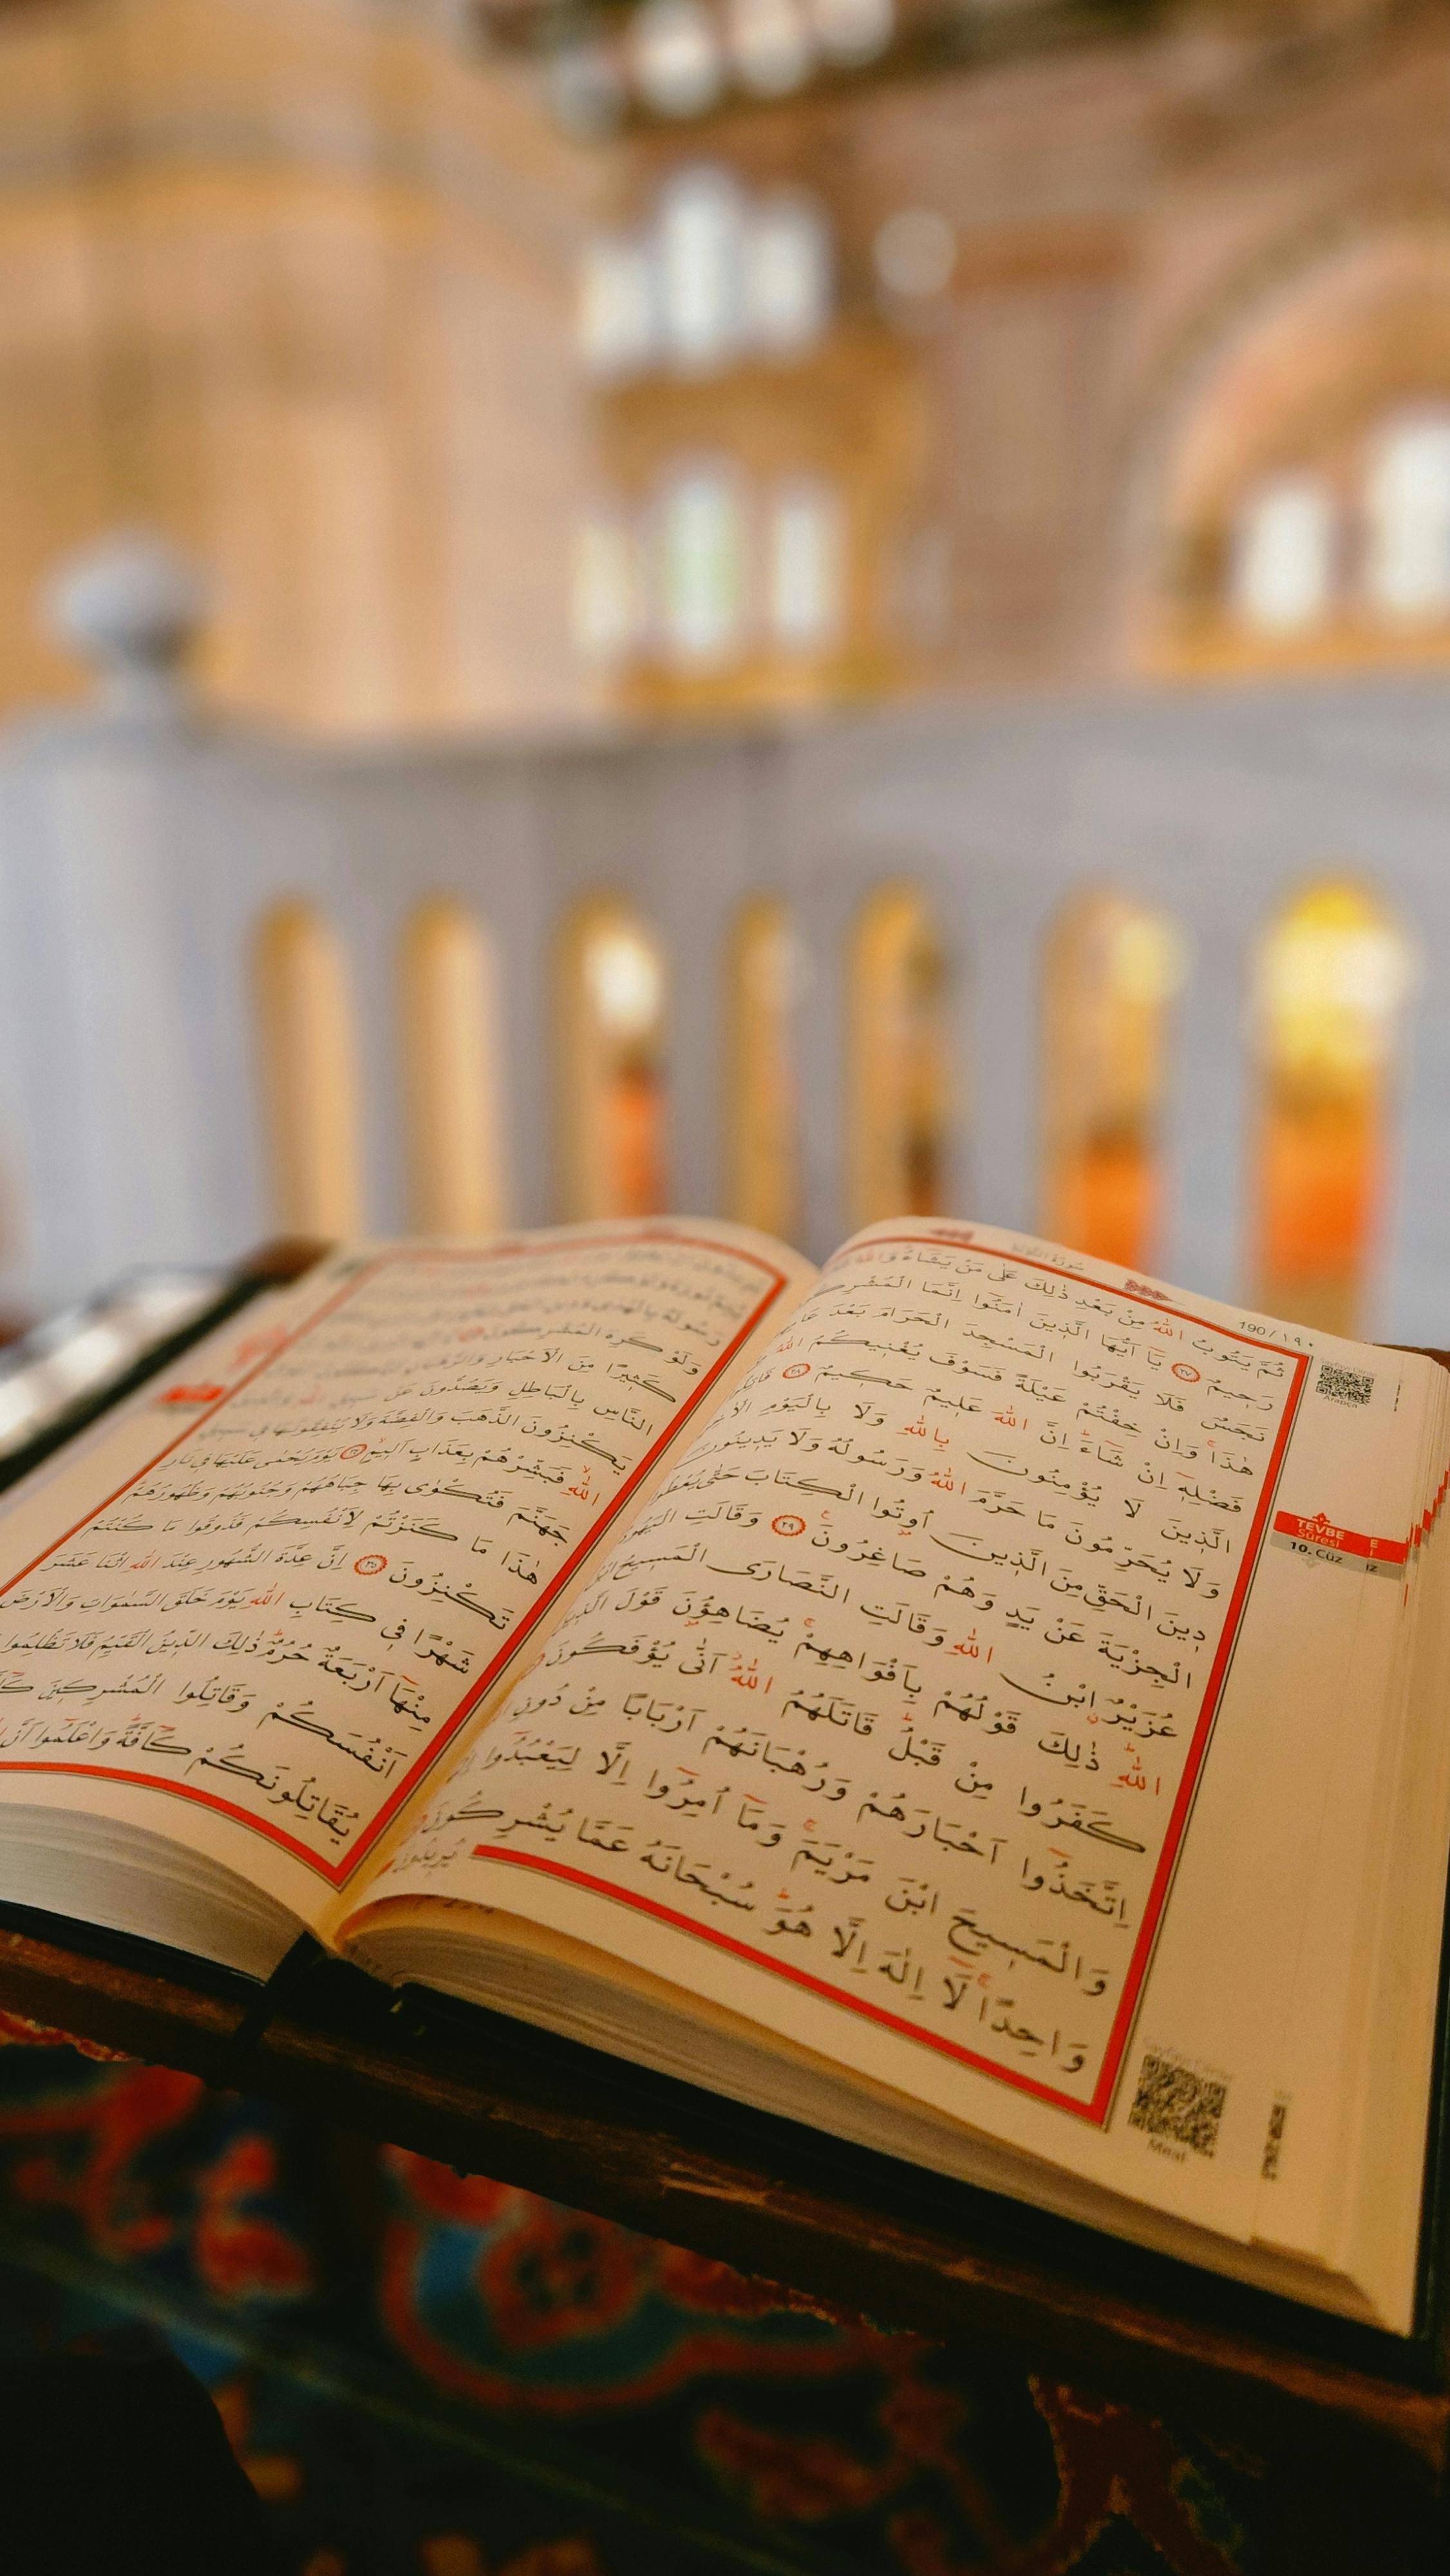 190/١٩٠
ثُمَّ يَتُوبُ اللّٰهُ مِنْ بَعْدِ ذٰلِكَ عَلٰى مَنْ يَشَٓاءُ
رَحِيمٌ ﴿٢٧﴾ يَٓا اَيُّهَا الَّذِينَ اٰمَنُٓوا اِنَّمَا الْمُشْرِكُونَ
نَجَسٌ فَلَا يَقْرَبُوا الْمَسْجِدَ الْحَرَامَ بَعْدَ
هٰذَا وَاِنْ خِفْتُمْ عَيْلَةً فَسَوْفَ يُغْنِيكُمُ اللّٰهُ
فَضْلِهِٓ اِنْ شَٓاءَ اِنَّ اللّٰهَ عَلِيمٌ حَكِيمٌ ﴿٢٨﴾
الَّذِينَ لَا يُؤْمِنُونَ بِاللّٰهِ وَلَا بِالْيَوْمِ
وَلَا يُحَرِّمُونَ مَا حَرَّمَ اللّٰهُ وَرَسُولُهُ وَلَا يَدِينُونَ
دِينَ الْحَقِّ مِنَ الَّذِينَ اُو۫تُوا الْكِتَابَ حَتّٰى يُعْطُوا
الْجِزْيَةَ عَنْ يَدٍ وَهُمْ صَاغِرُونَ ﴿٢٩﴾ وَقَالَتِ الْيَهُودُ
عُزَيْرٌۨ ابْنُ اللّٰهِ وَقَالَتِ النَّصَارَى الْمَسِيحُ
اللّٰهِ ذٰلِكَ قَوْلُهُمْ بِاَفْوَاهِهِمْ يُضَاهِؤُ۫نَ قَوْلَ
كَفَرُوا مِنْ قَبْلُ قَاتَلَهُمُ اللّٰهُ اَنّٰى يُؤْفَكُونَ
اِتَّخَذُٓوا اَحْبَارَهُمْ وَرُهْبَانَهُمْ اَرْبَابًا مِنْ دُونِ
وَالْمَسِيحَ ابْنَ مَرْيَمَ وَمَٓا اُمِرُٓوا اِلَّا لِيَعْبُدُٓوا
وَاحِدًا لَٓا اِلٰهَ اِلَّا هُوَ سُبْحَانَهُ عَمَّا يُشْرِكُونَ
TEVBE
Sûresi
10. Cüz
Meal
وَلَوْ كَرِهَ الْمُشْرِكُونَ
كَثِيرًا مِنَ الْاَحْبَارِ وَالرُّهْبَانِ
النَّاسِ بِالْبَاطِلِ وَيَصُدُّونَ عَنْ سَبِيلِ
يَكْنِزُونَ الذَّهَبَ وَالْفِضَّةَ وَلَا يُنْفِقُونَهَا فِي سَبِيلِ
اللّٰهِ فَبَشِّرْهُمْ بِعَذَابٍ اَلِيمٍ يَوْمَ يُحْمٰى عَلَيْهَا فِي نَارِ
جَهَنَّمَ فَتُكْوٰى بِهَا جِبَاهُهُمْ وَجُنُوبُهُمْ وَظُهُورُهُمْ
هٰذَا مَا كَنَزْتُمْ لِاَنْفُسِكُمْ فَذُوقُوا مَا كُنْتُمْ
تَكْنِزُونَ ﴿٣٥﴾ اِنَّ عِدَّةَ الشُّهُورِ عِنْدَ اللّٰهِ اثْنَا عَشَرَ
شَهْرًا فِي كِتَابِ اللّٰهِ يَوْمَ خَلَقَ السَّمٰوَاتِ وَالْاَرْضَ
مِنْهَٓا اَرْبَعَةٌ حُرُمٌ ذٰلِكَ الدِّينُ الْقَيِّمُ فَلَا تَظْلِمُوا
اَنْفُسَكُمْ وَقَاتِلُوا الْمُشْرِكِينَ
يُقَاتِلُونَكُمْ كَٓافَّةً وَاعْلَمُٓوا اَنَّ